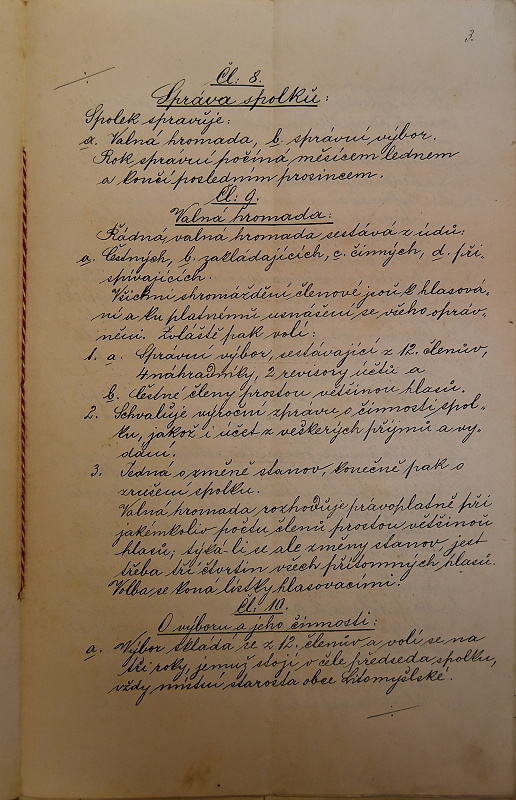 3.
Čl: 8.
Správa spolku:
Spolek spravuje:
a. Valná hromada, b. správní výbor.
Rok správní počíná měsícem lednem
a končí posledním prosincem.
Čl: 9.
Valná hromada:
Řádná valná hromada sestává z údů:
a. Čestných, b. zakládajících, c. činných, d. při-
spívajících.
Všichni shromáždění členové jsou k hlasová-
ní a ku platnému usnášení se všeho opráv-
něni. Zvláště pak volí:
1. a. Správní výbor, sestávající z 12. členův,
4 náhradníky, 2 revisory účtů a
b. čestné členy prostou většinou hlasů.
2. Schvaluje výroční zprávu o činnosti spol-
ku, jakož i účet z veškerých příjmů a vy-
dání.
3. Jedná o změně stanov, konečně pak o
zrušení spolku.
Valná hromada rozhoduje právoplatně při
jakémkoliv počtu členů prostou většinou
hlasů; týká-li se ale změny stanov, jest
třeba tří čtvrtin všech přítomných hlasů.
Volba se koná lístky hlasovacími.
Čl: 10.
O výboru a jeho činnosti:
a. Výbor skládá se z 12. členův a volí se na
tři roky, jemuž stojí v čele předseda spolku,
vždy místní starosta obce Litomyšlské.